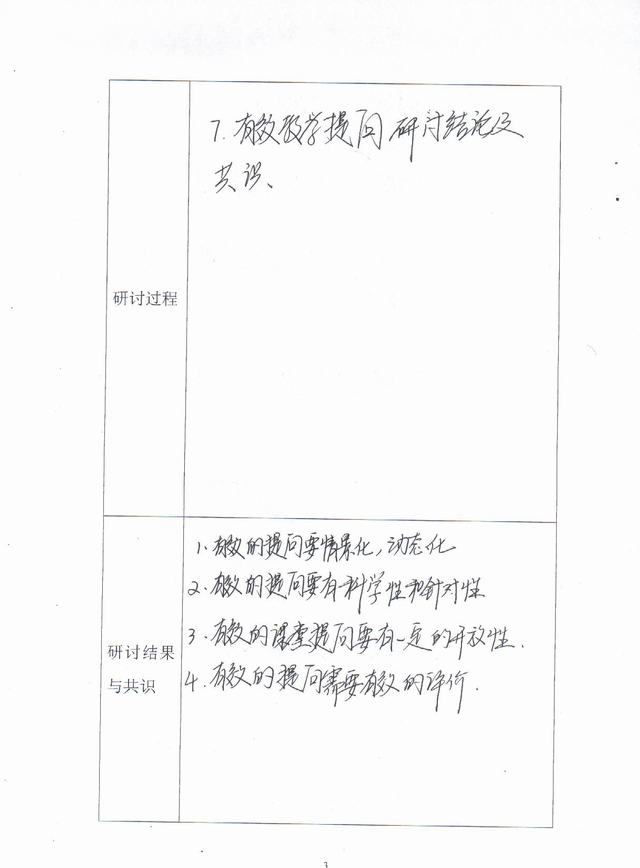 7. 有效教学提问研讨结论及
共识、
研讨过程
1. 有效的提问要情景化，动态化
2. 有效的提问要有科学性和针对性
3. 有效的课堂提问要有一定的开放性.
4. 有效的提问需要有效的评价.
研讨结果
与共识
3